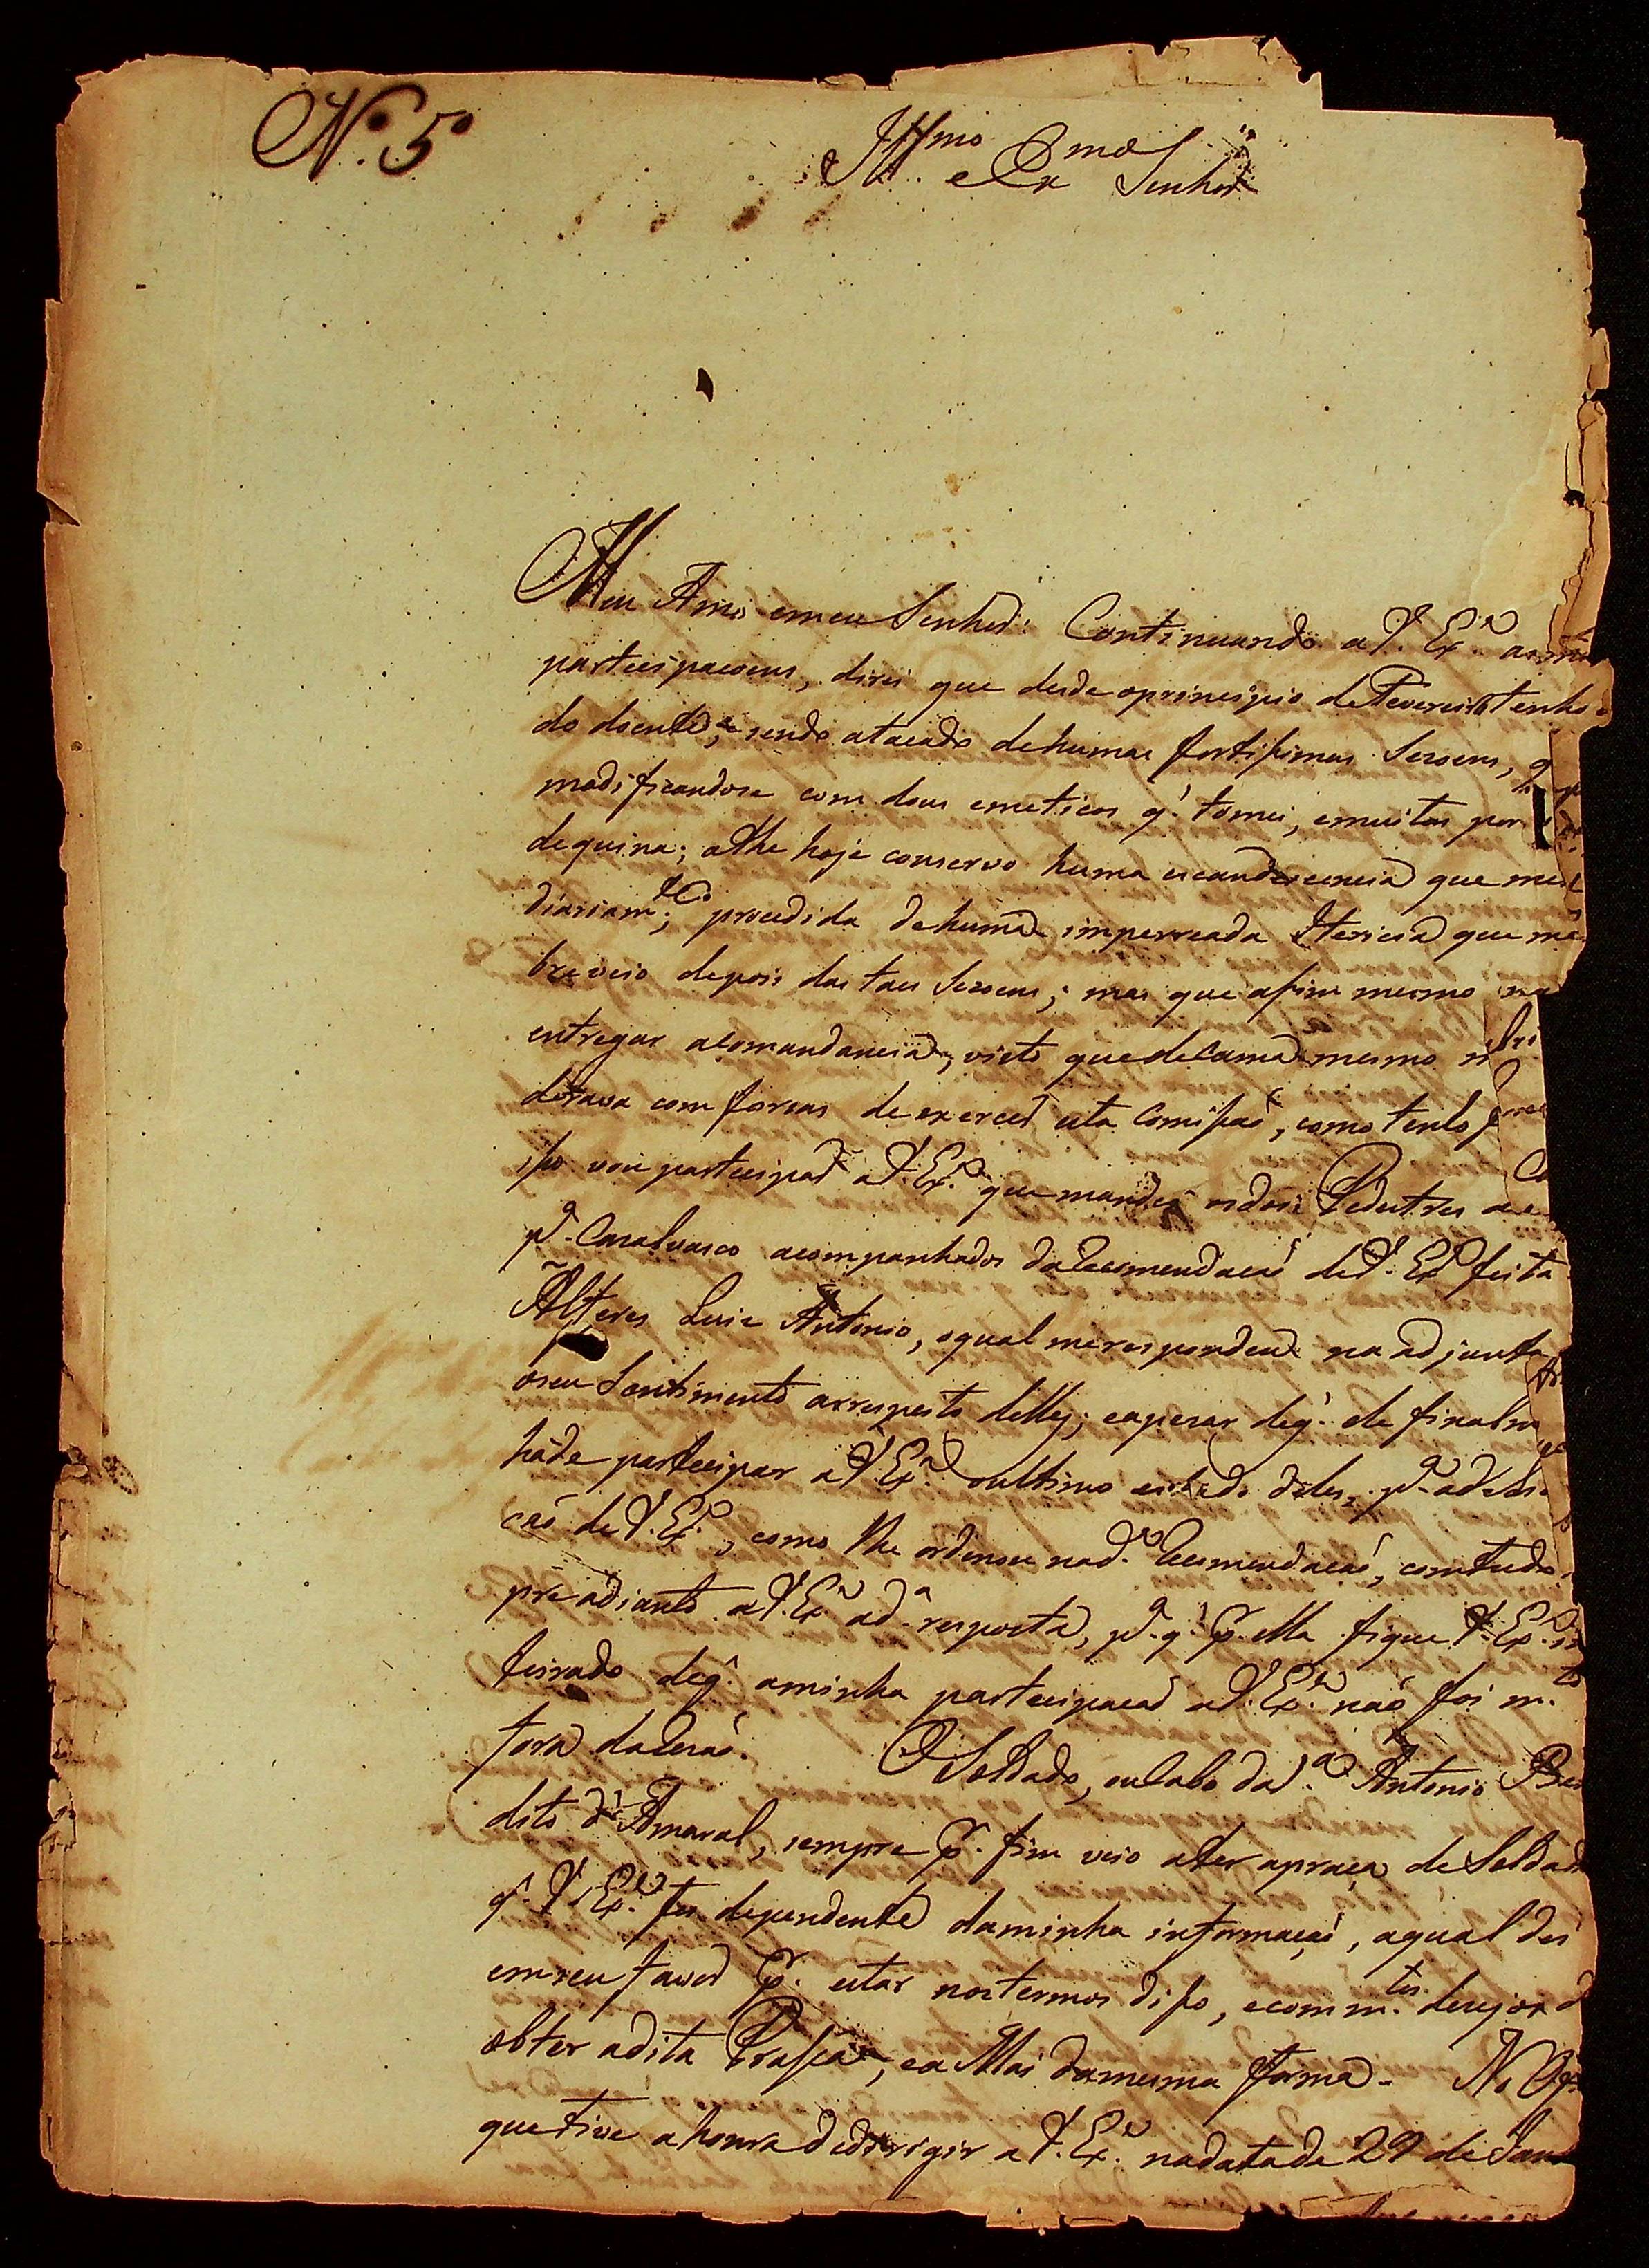 N.º 5º
Ill.mo e Ex.mo Senhor
Meu Amo emeu Senhor: Continuando a V. Ex.ª as
partecipacoens, direi que desde oprincipio de Fevereiro tenho
do doente, sendo atacado dehumas fortissimas Sezoens, q
modificandose com dous emeticos q.' tomei, emuitas por
dequina; athe hoje conservo huma escandecencia que
diariam.te; procedida dehuma imperreada Itericia que
breveio depois das taes Sezoens; mas que assim mesmo
entregar aComandancia, visto que deCama mesmo
derava com forsas de exercer esta Comissaõ, como tenho
isso vou partecipar a V. Ex.ª que mandei osdois Pedestres
p.ª Casalvasco acompanhados daRecomendacaõ de V. Ex.ª feita
Alferes Luiz Antonio, oqual merespondeu na adjunta
oseu Sentimento arrespeito delles; eapezar deq.' ele
hade partecipar a V. Ex.ª oultimo estado deles, p.ª
caõ de V. Ex.ª, como lhe ordenou nad.ª Recomendacaõ, comtudo
pre adianto a V. Ex.ª ad.ª resposta, p.ª q.' p.r ella fique V. Ex.ª in
teirado deq.' aminha partecipacaõ a V. Ex.ª naõ foi m.to
fora daRezaõ. O Soldado, ouCabo da Antonio
dito d'Amaral, sempre p.r fim veio ater apraça de Soldad
q.' V. Ex.ª fez dependente daminha informaçaõ, aqual dei
emseu favor p.r estar nostermos disso, ecom m.tos dezejos d
obter adita Prassa, ea Mai damesma forma. No
quetive ahonra dedirrigir a V. Ex.ª nadatade 29 de Jan